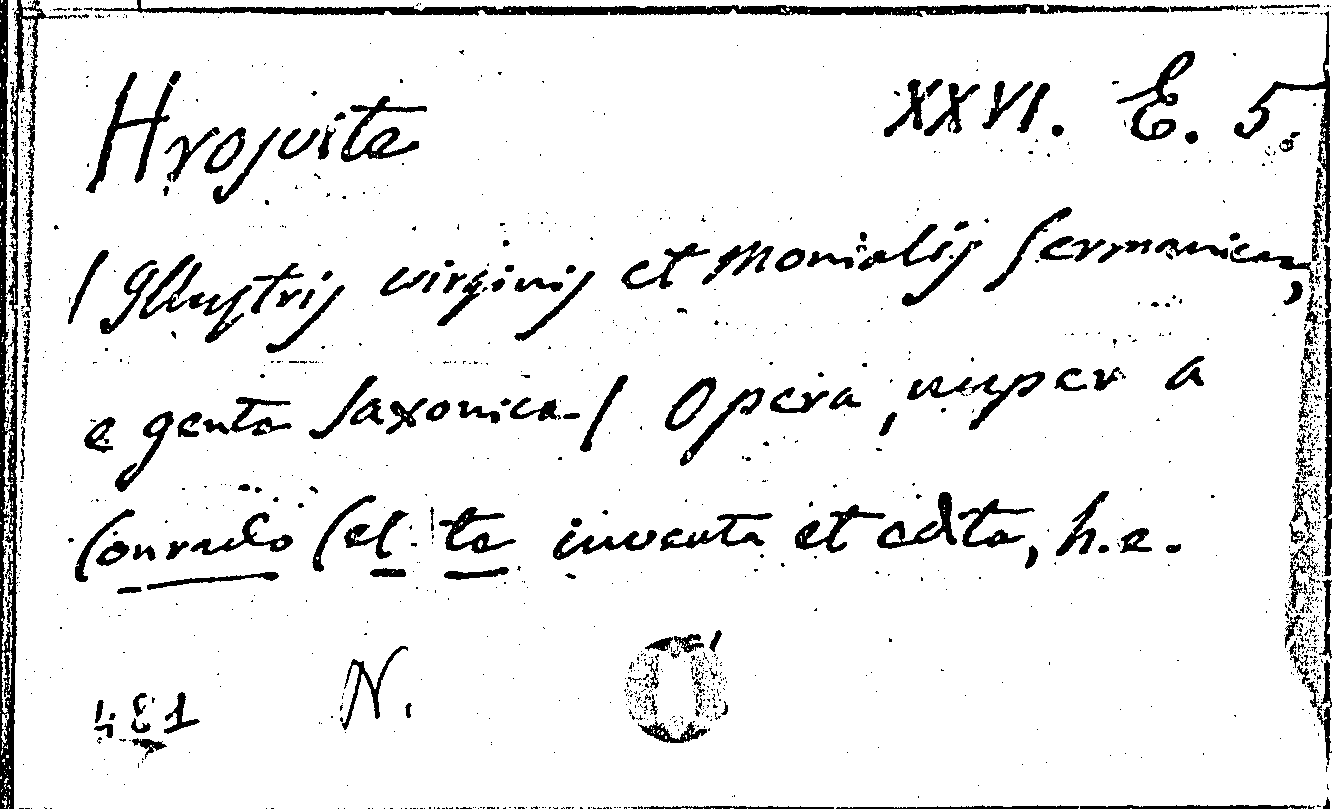 Hrosvite XXVI. E. 5.
(Illustris virginis et monialis Germanicae,
e gente Saxonica-) Opera, nuper a
Conrado Celte inventa et edita, h. e.
481 N.